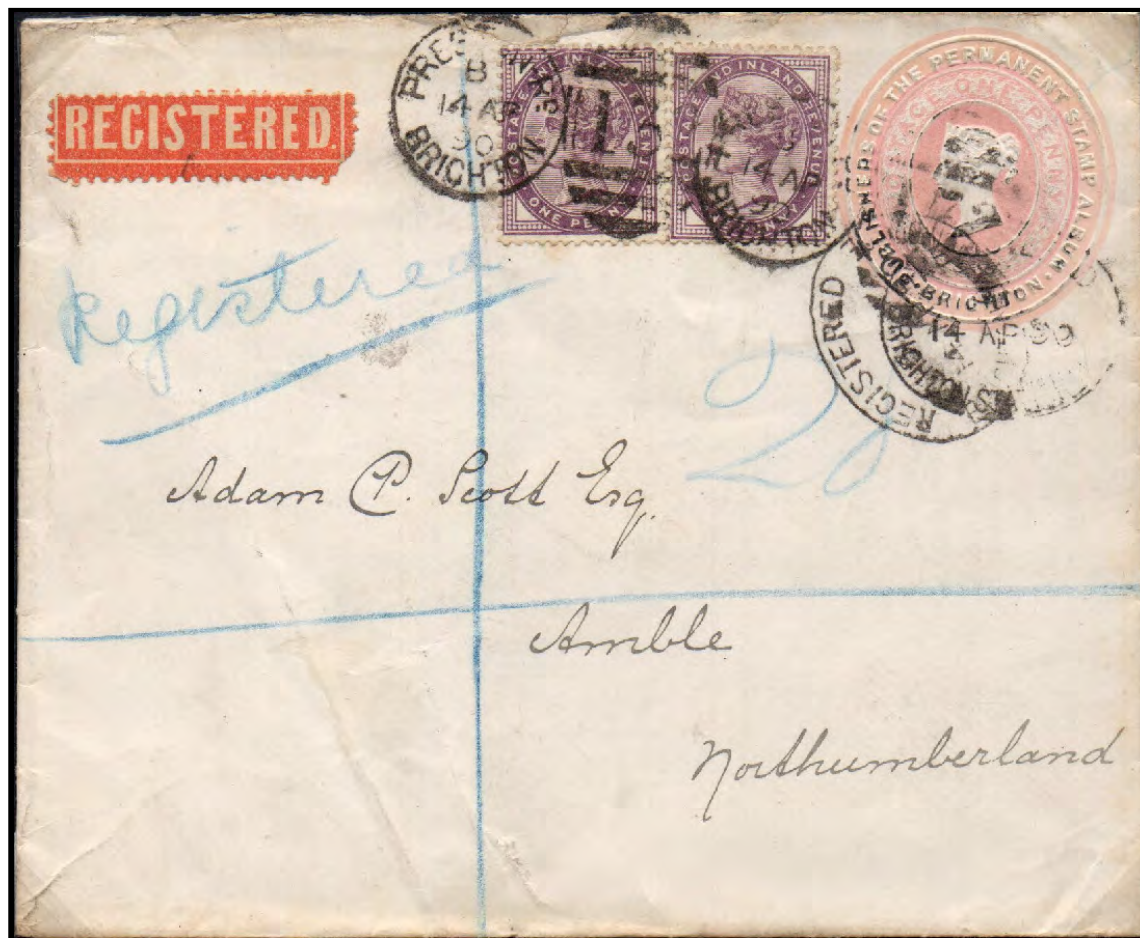 REGISTERED.
PRES
B
14 AP
90
BRIGHTON
POSTAGE AND INLAND REVENUE
ONE PENNY
L
POSTAGE AND INLAND REVENUE
14 A
BRIGHTON
PUBLISHERS OF THE PERMANENT STAMP ALBUM.
BRIGHTON.
REGISTERED
14 AP 90
BRIGHTON
Registered
20
Adam P. Scott Esq.
Amble
Northumberland